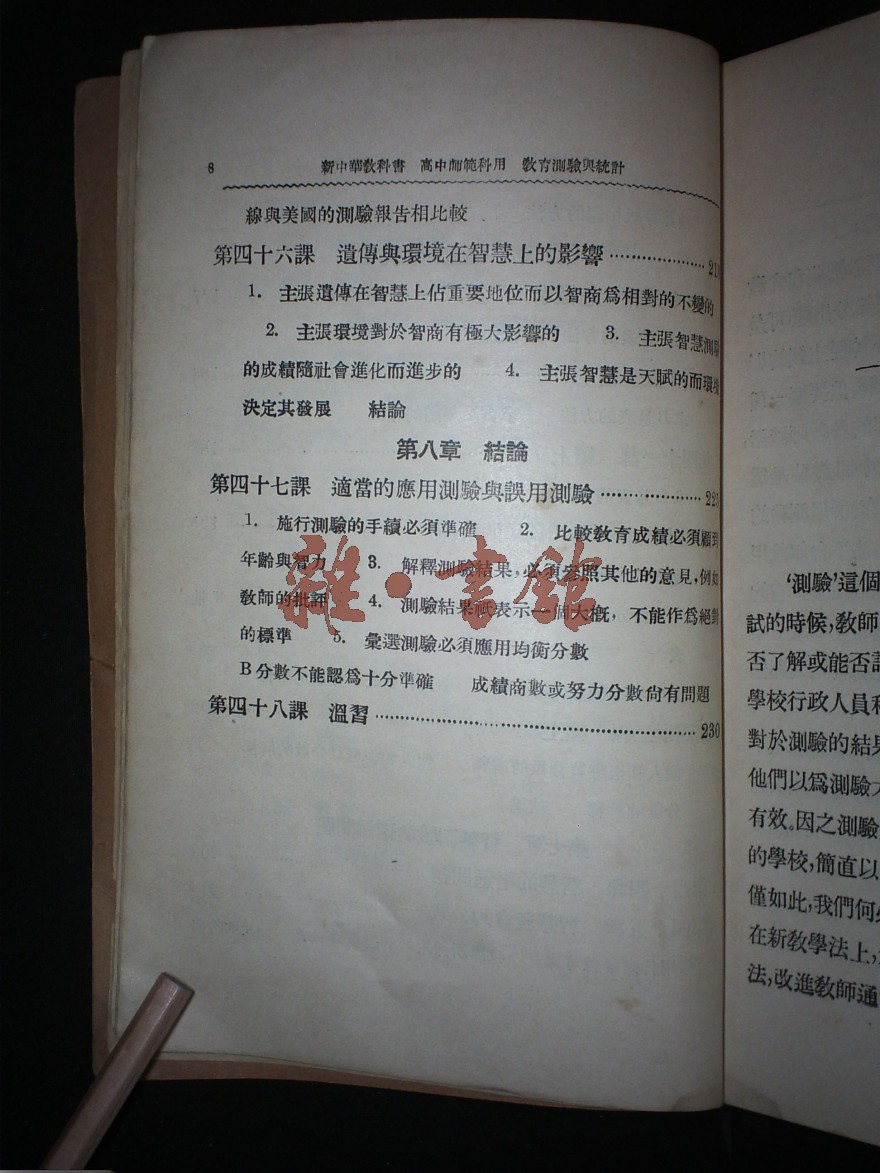 8 新中華教科書 高中師範科用 教育測驗與統計
線與美國的測驗報告相比較
第四十六課 遺傳與環境在智慧上的影響……………21
1. 主張遺傳在智慧上佔重要地位而以智商爲相對的不變的
2. 主張環境對於智商有極大影響的 3. 主張智慧測驗
的成績隨社會進化而進步的 4. 主張智慧是天賦的而環境
決定其發展 結論
第八章 結論
第四十七課 適當的應用測驗與誤用測驗……………225
1. 施行測驗的手續必須準確 2. 比較教育成績必須顧到
年齡與智力 3. 解釋測驗結果,必須參照其他的意見,例如
教師的批評 4. 測驗結果祇表示一個大概,不能作爲絕對
的標準 5. 彙選測驗必須應用均衡分數
B分數不能認爲十分準確 成績商數或努力分數尙有問題
第四十八課 溫習……………………………………230
雜·書館
‘測驗’這個
試的時候,教師
否了解或能否
學校行政人員
對於測驗的結果
他們以爲測驗
有效。因之測驗
的學校,簡直以
僅如此,我們何
在新教學法上,
法,改進教師通